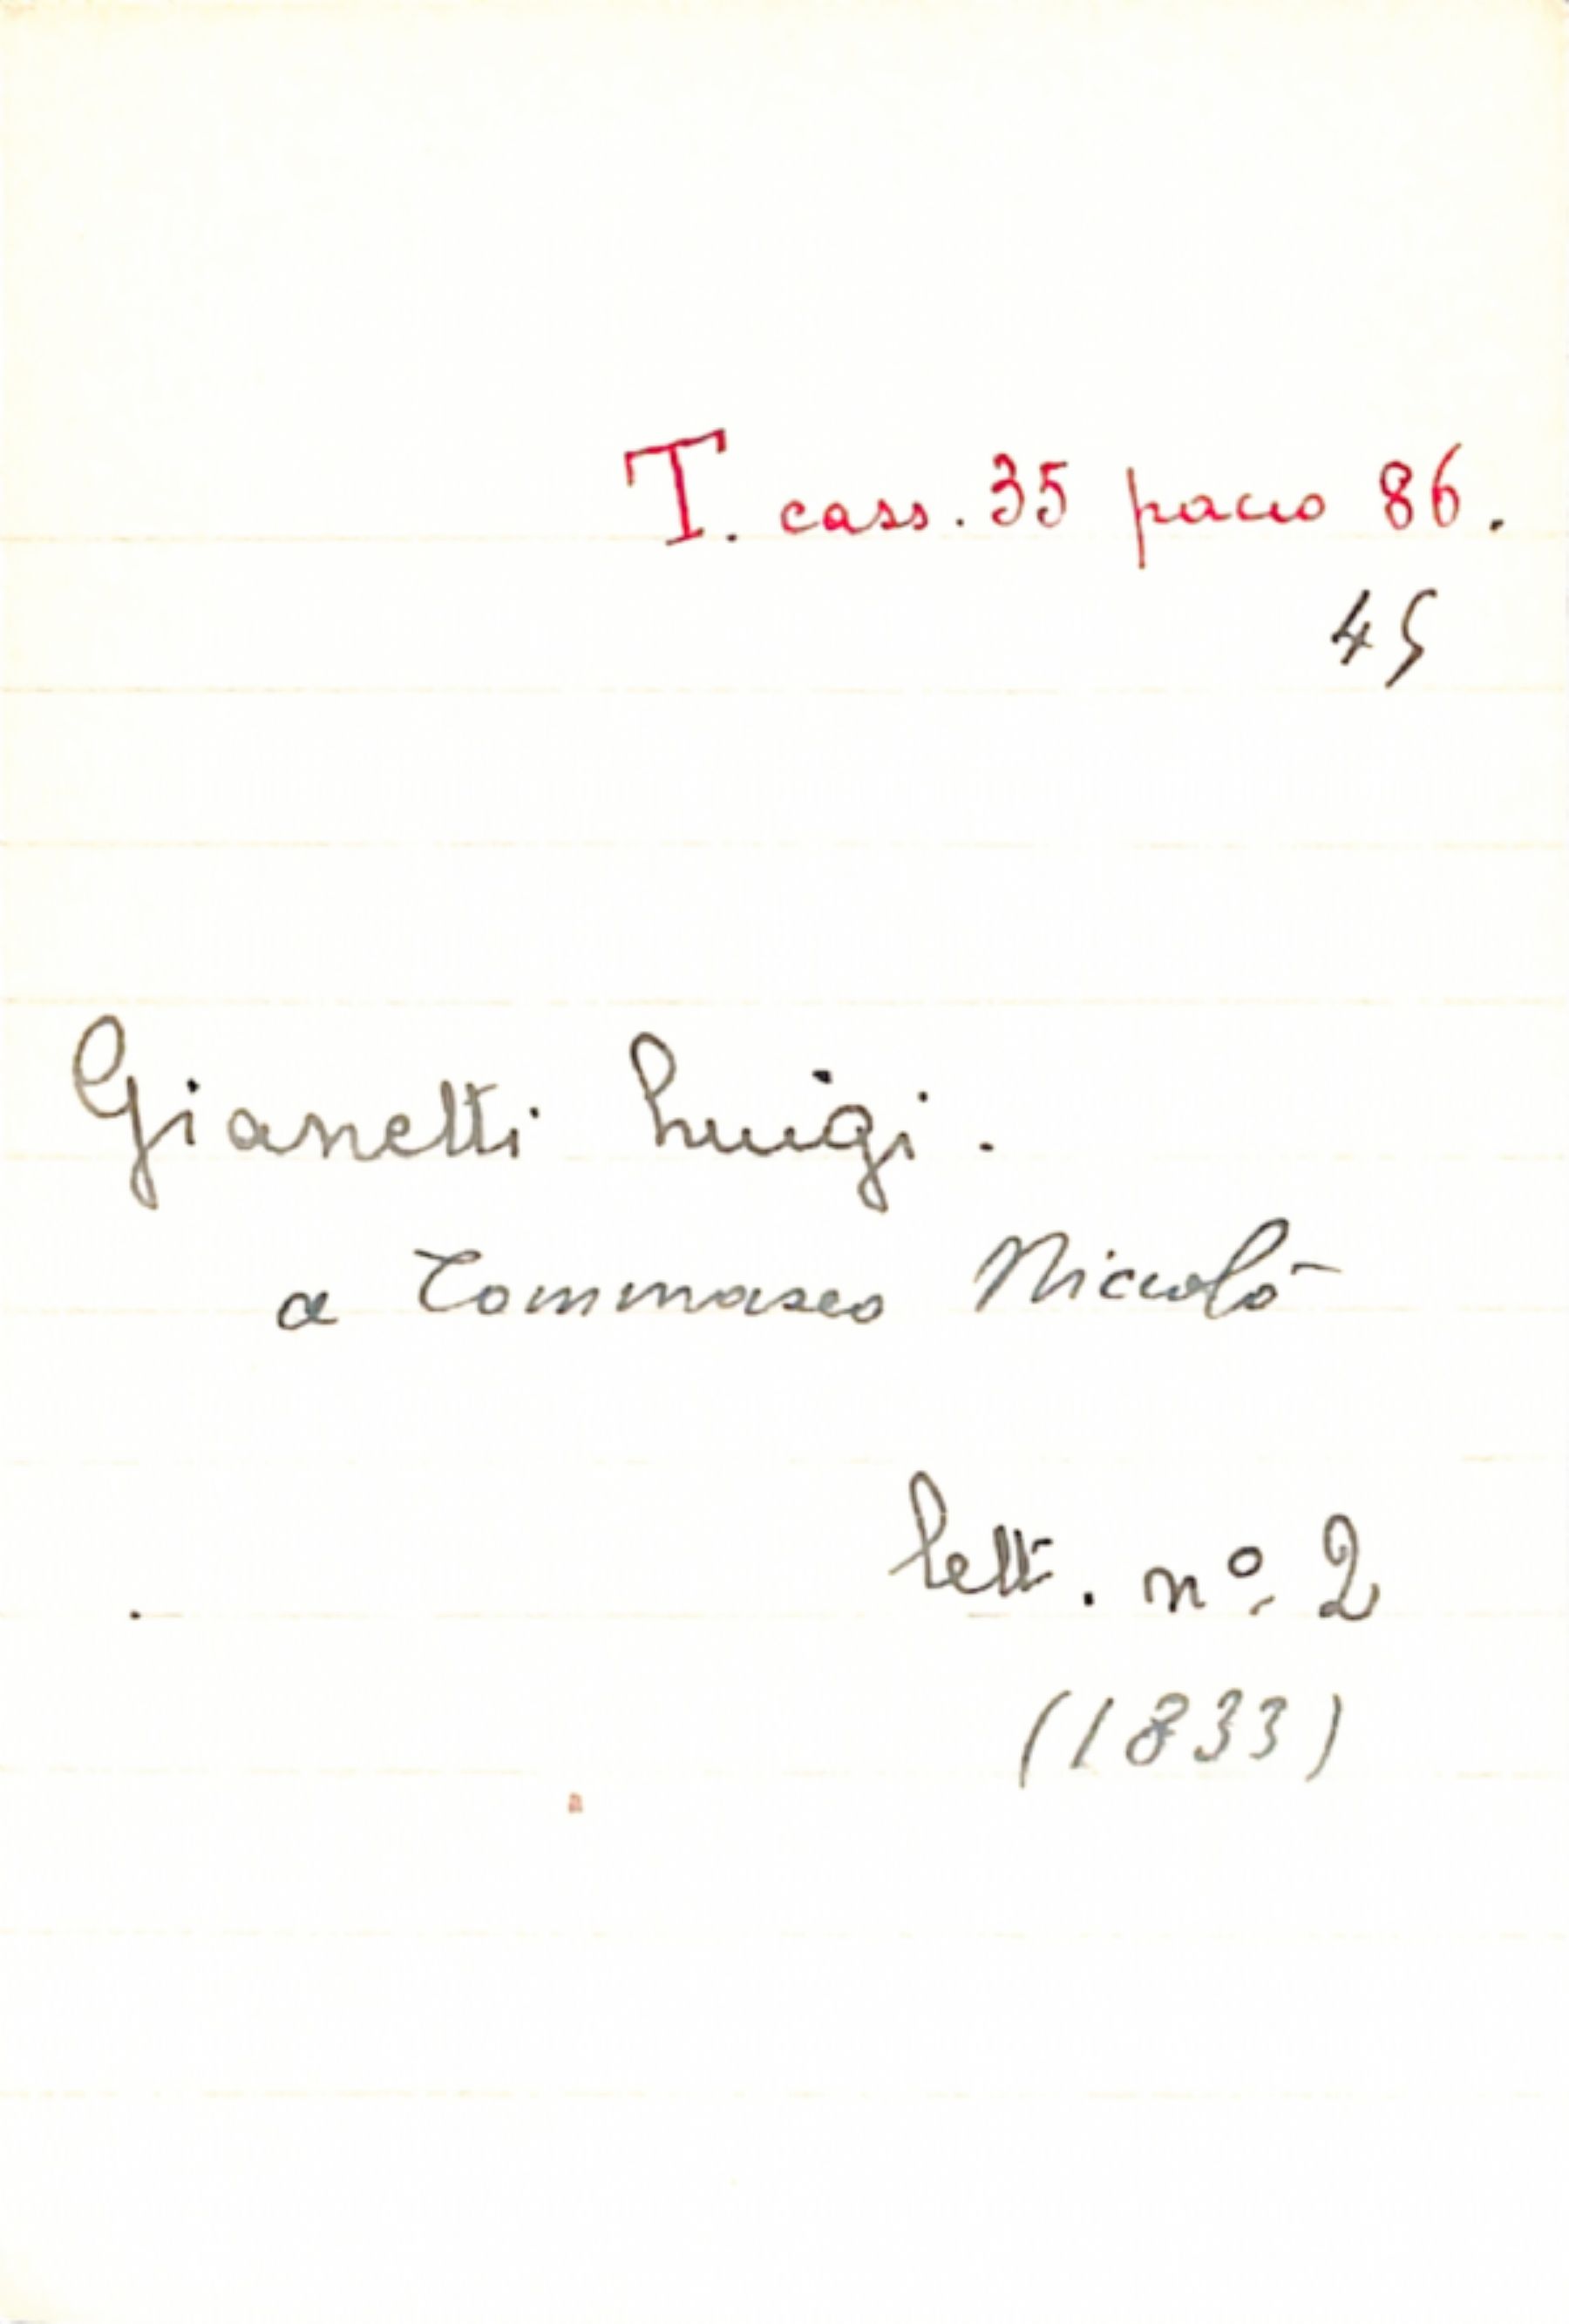 T. cass. 35 pacco 86.
45
Gianetti Luigi.
a Tommaseo Niccolò
lett. nº 2
(1833)